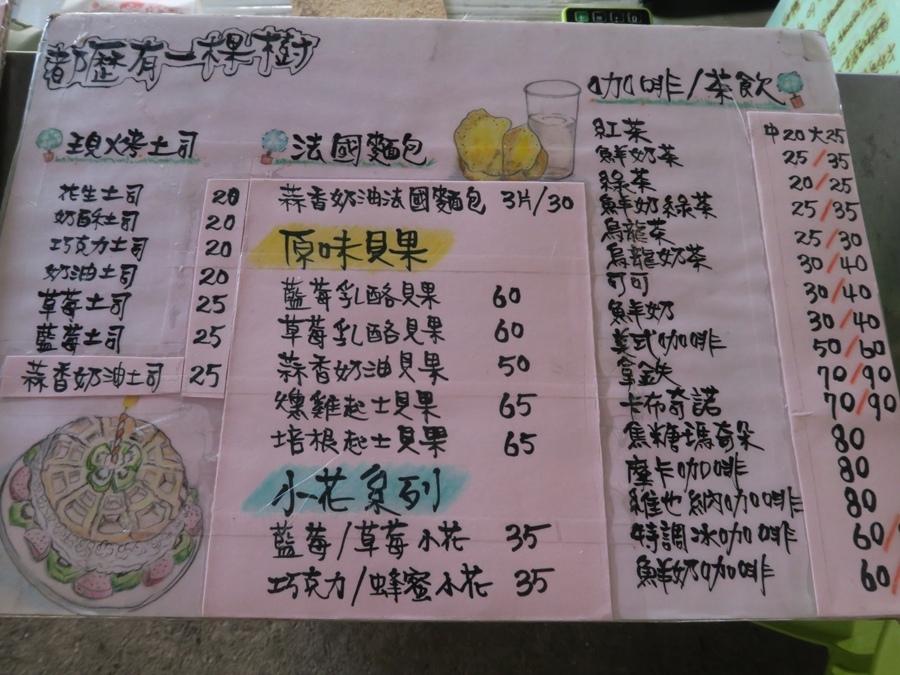 都歷有一棵樹
現烤土司
花生土司 20
奶酥土司 20
巧克力土司 20
奶油土司 20
草莓土司 25
藍莓土司 25
蒜香奶油土司 25
法國麵包
蒜香奶油法國麵包 3片/30
原味貝果
藍莓乳酪貝果 60
草莓乳酪貝果 60
蒜香奶油貝果 50
燻雞起士貝果 65
培根起士貝果 65
小花系列
藍莓/草莓小花 35
巧克力/蜂蜜小花 35
咖啡/茶飲
紅茶 中20大25
鮮奶茶 25/35
綠茶 20/25
鮮奶綠茶 25/35
烏龍茶 25/30
烏龍奶茶 30/40
可可 30/40
鮮奶 30/40
美式咖啡 50/60
拿鐵 70/90
卡布奇諾 70/90
焦糖瑪奇朵 80
摩卡咖啡 80
維也納咖啡 80
特調冰咖啡 60/
鮮奶咖啡 60/